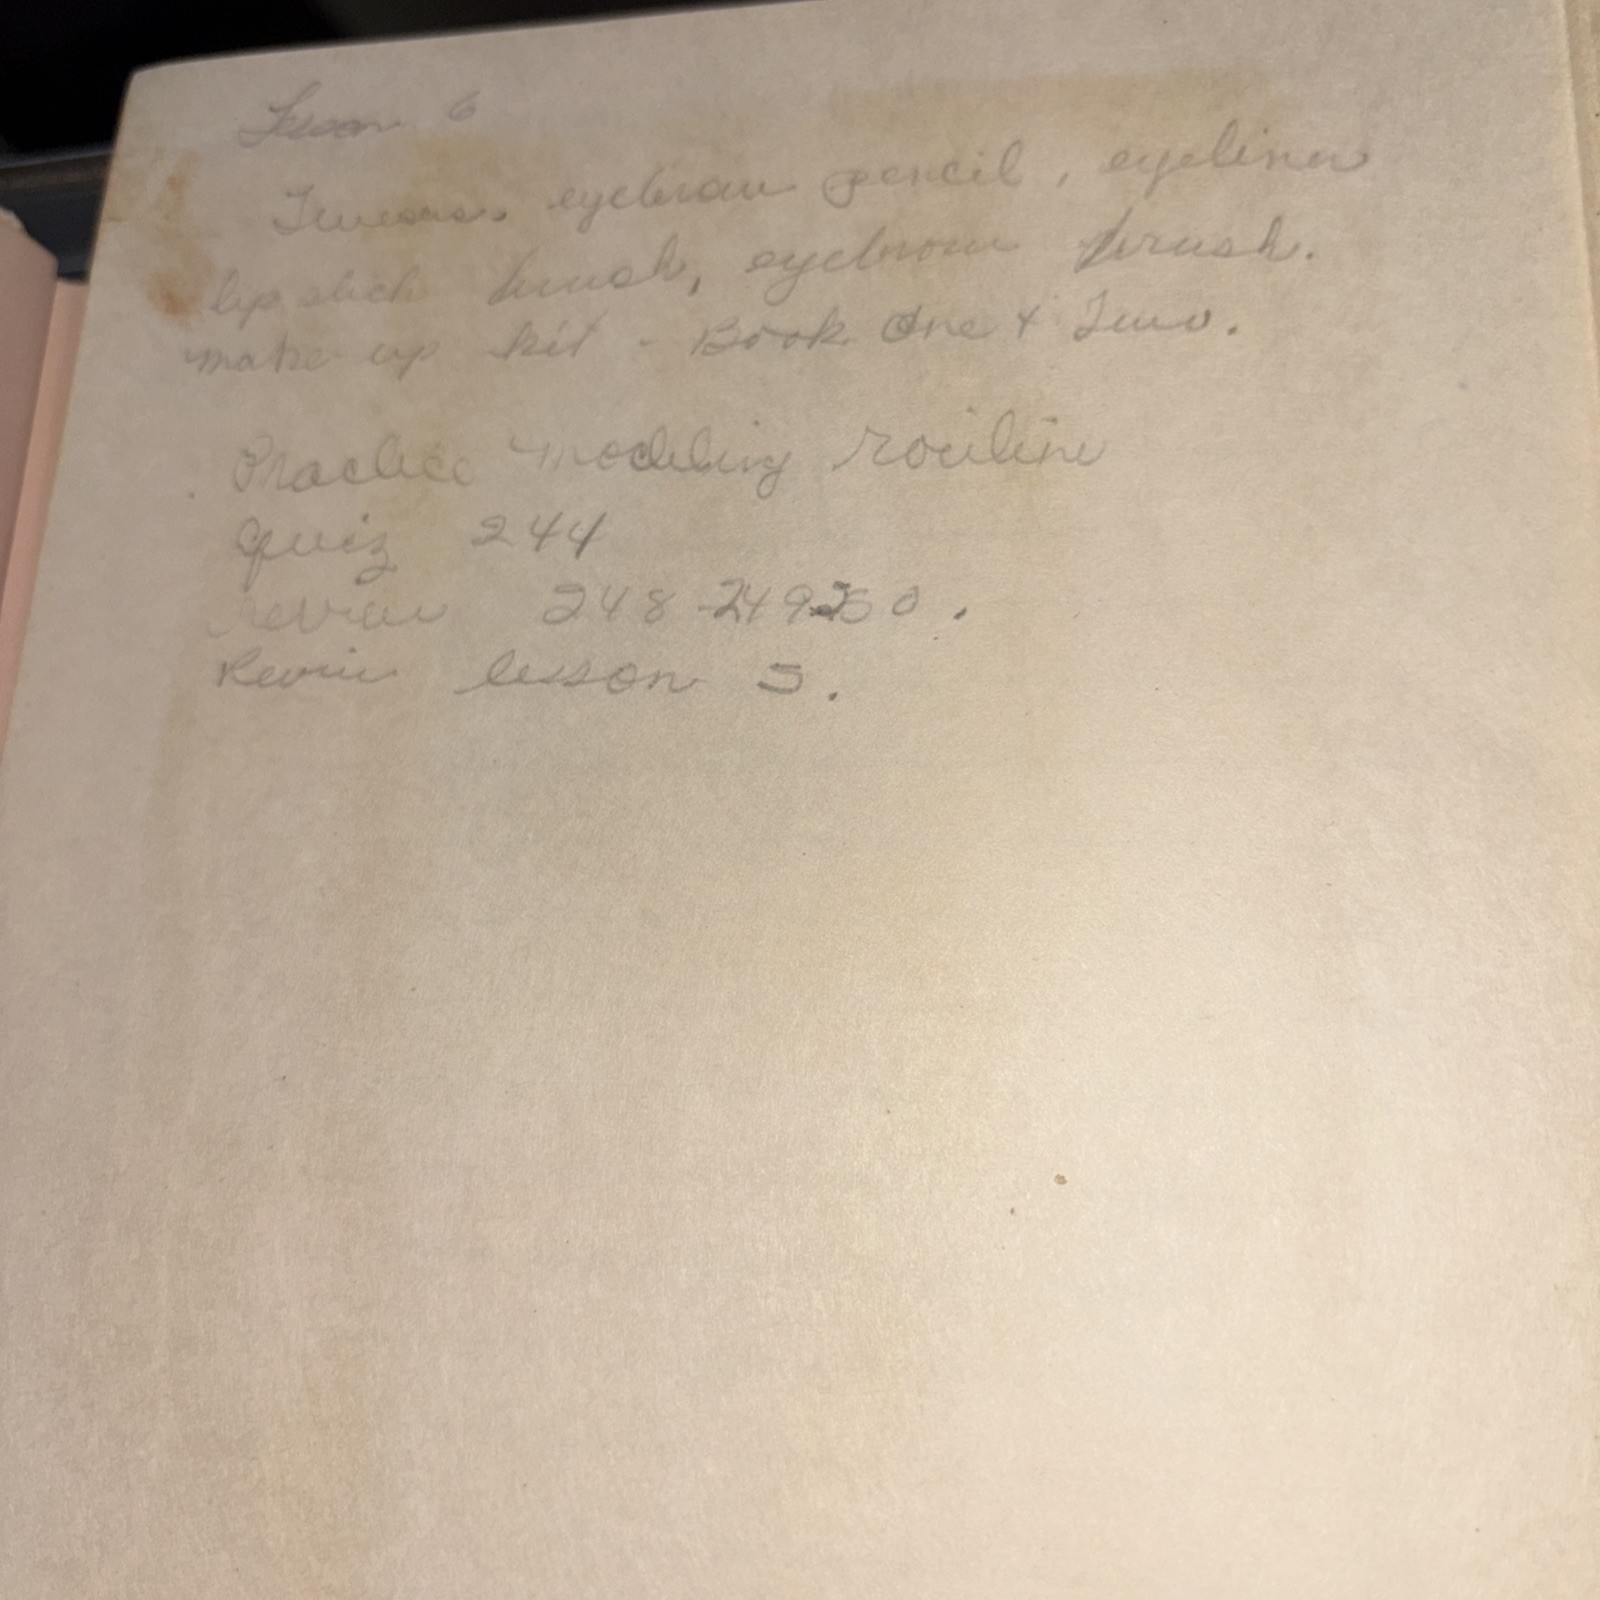 Lesson 6
eyebrow pencil, eyeliner
lip stick brush, eyebrow brush.
make up kit - Book One & Two.
Practice modeling routine
Quiz 244
review 248-249-250.
Review lesson 5.